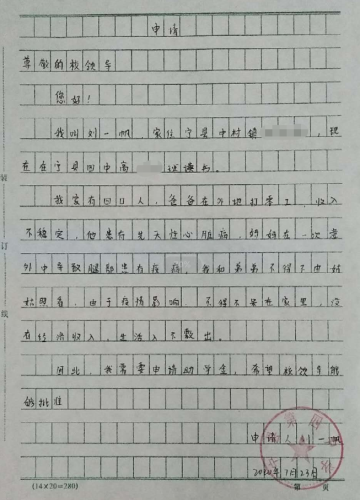 申请
尊敬的校领导
您好！
我叫刘一帆，家住宁县中村镇，现
在在宁县四中高读书。
我家有四口人，爸爸在外地打零工，收入
不稳定，他患有先天性心脏病，妈妈在一次意
外中导致腿部患有疾病，我和弟弟不得不由她
照看，由于疫情影响，不得不呆在家里，没
有经济收入，生活入不敷出。
因此，我需要申请助学金，希望校领导能
够批准
申请人 刘一帆
年7月23日
装
订
线
(14×20=280)
第 页